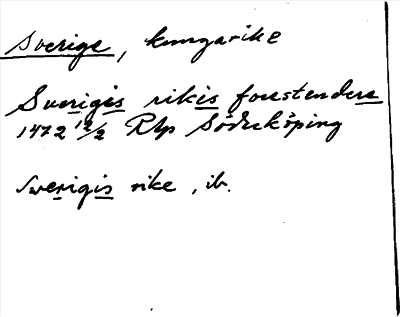 Sverige, kungarike
Sverigis rikis forestendere
1472 12/2 Rap Söderköping
Swerigis rike, ib.